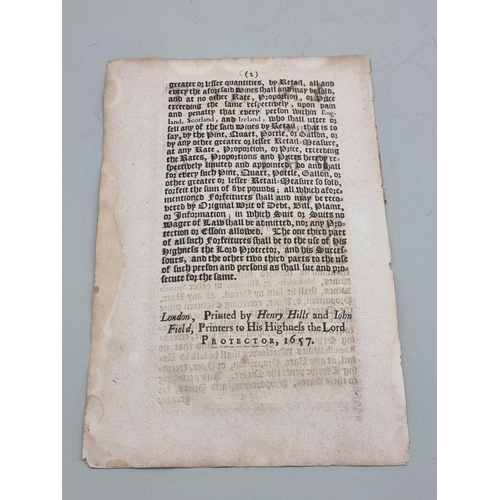 (2)
greater or lesser quantities, by Retail, all and
every the aforesaid Wines shall and may be sold,
and at no other Rate, Proportion, or Price
exceeding the same respectively, upon pain
and penalty that every person within Eng-
land, Scotland, and Ireland, who shall utter or
sell any of the said Wines by Retail; that is to
say, by the Pint, Quart, Pottle, or Gallon, or
by any other greater or lesser Retail-Measure,
at any Rate, Proportion, or Price, exceeding
the Rates, Proportions and Prices hereby re-
spectively limited and appointed, do and shall
for every such Pint, Quart, Pottle, Gallon, or
other greater or lesser Retail-Measure so sold,
forfeit the sum of five pounds; all which afore-
mentioned Forfeitures shall and may be reco-
vered by Original Writ of Debt, Bill, Plaint,
or Information; in which Suit or Suits no
Wager of Law shall be admitted, nor any Pro-
tection or Essoin allowed. The one third part
of all such Forfeitures shall be to the use of His
Highness the Lord Protector, and his Succes-
sours, and the other two third parts to the use
of such person and persons as shall sue and pro-
secute for the same.
London, Printed by Henry Hills and Iohn
Field, Printers to His Highness the Lord
PROTECTOR, 1657.